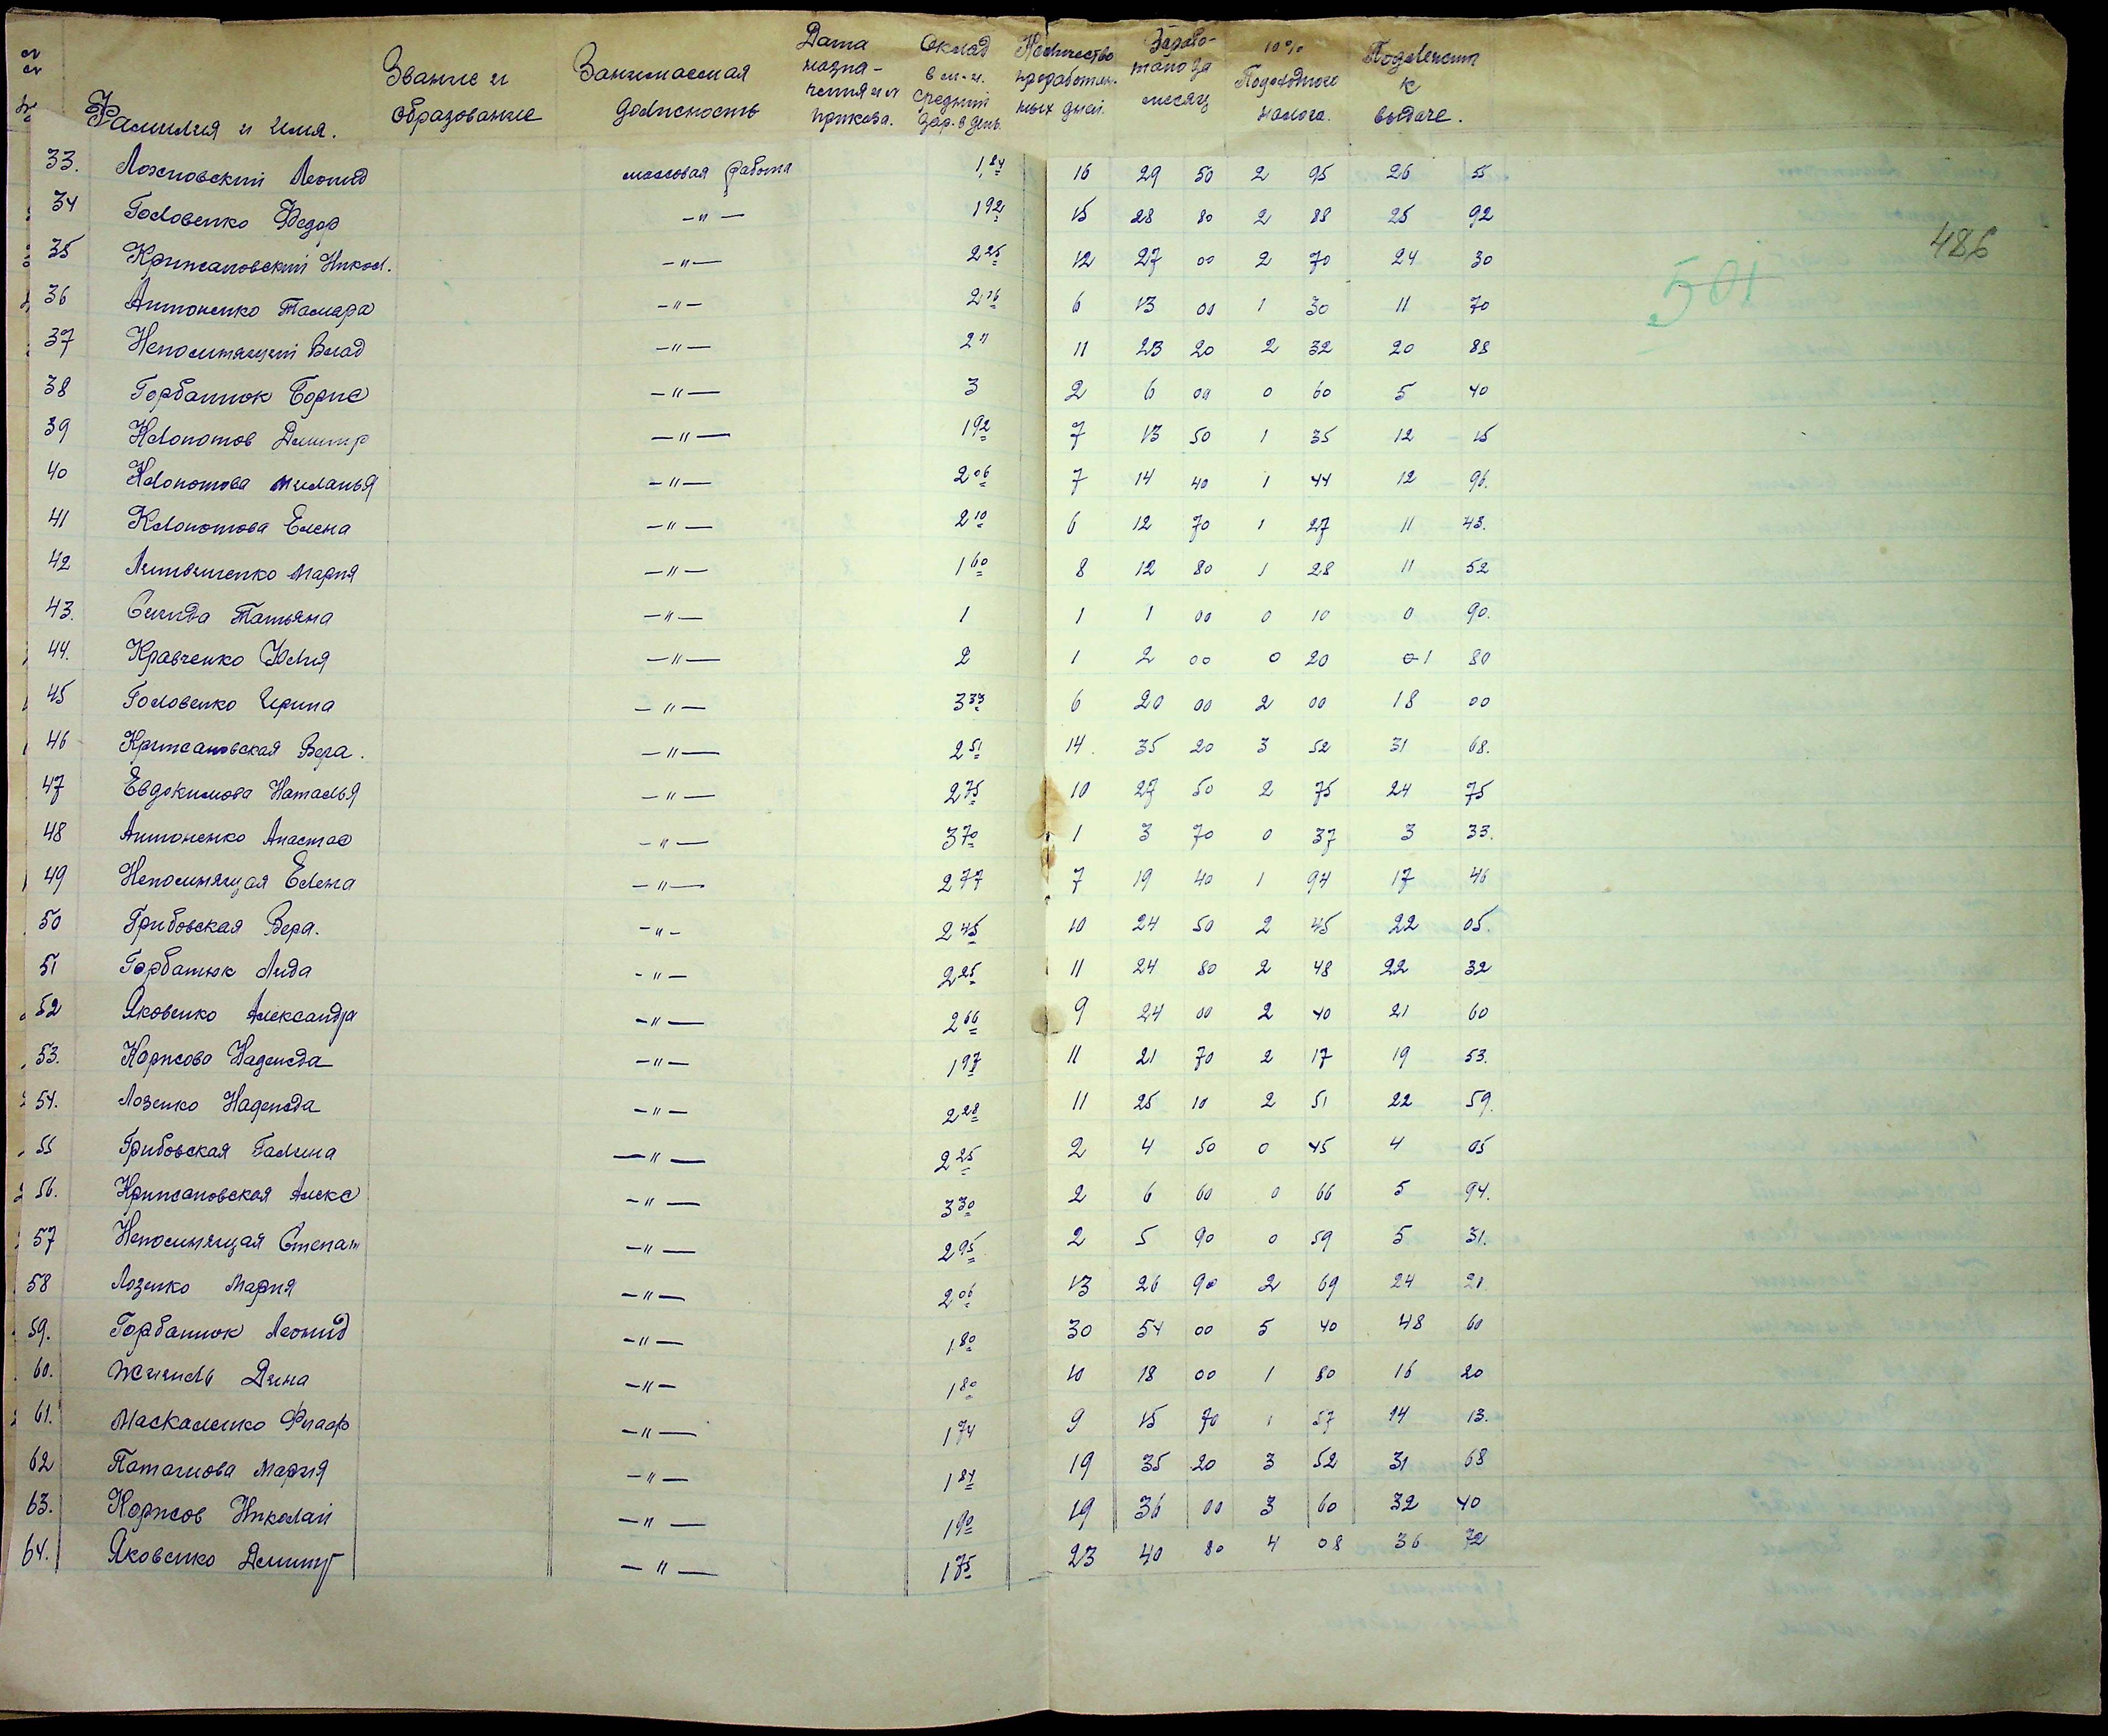 Фамилия и имя. Звание и образование Занимаемая должность Дата назначения и № приказа. Оклад в м-ц. средний зар. в день. Количество проработанных дней. Заработано за месяц 10% Подоходного налога. Подлежит к выдаче.
33. Лохновский Леонид массовая работа 1,84 16 29 50 2 95 26 55
34 Головенко Федор —"— 1 92 15 28 80 2 88 25 92
486
35 Крижановский Никол. —"— 2 25 12 27 00 2 70 24 30
501
36 Антоненко Тамара —"— 2 16 6 13 00 1 30 11 70
37 Непомнящий Влад —"— 2 11 11 23 20 2 32 20 88
38 Горбатюк Борис —"— 3 2 6 00 0 60 5 40
39 Клопотов Дмитр —"— 1 92 7 13 50 1 35 12 15
40 Клопотова Миланья —"— 2 06 7 14 40 1 44 12 96.
41 Клопотова Елена —"— 2 10 6 12 70 1 27 11 43.
42 Литвиненко Мария —"— 1 60 8 12 80 1 28 11 52
43. Сигида Татьяна —"— 1 1 1 00 0 10 0 90.
44. Кравченко Юлия —"— 2 1 2 00 0 20 1 80
45 Головенко Ирина —"— 3 33 6 20 00 2 00 18 00
46 Крижановская Вера. —"— 2 51 14. 35 20 3 52 31 68.
47 Евдокимова Наталья —"— 2 75 10 27 50 2 75 24 75
48 Антоненко Анастас —"— 3 70 1 3 70 0 37 3 33.
49 Непомнящая Елена —"— 2 77 7 19 40 1 94 17 46
50 Грибовская Вера. —"— 2 45 10 24 50 2 45 22 05.
51 Горбатюк Лида —"— 2 25 11 24 80 2 48 22 32
52 Яковенко Александра —"— 2 66 9 24 00 2 40 21 60
53. Коржова Надежда —"— 1 97 11 21 70 2 17 19 53.
54. Лозенко Надежда —"— 2 28 11 25 10 2 51 22 59.
55 Грибовская Галина —"— 2 25 2 4 50 0 45 4 05
56. Крижановская Алекс —"— 3 30 2 6 60 0 66 5 94.
57 Непомнящая Степан —"— 2 95 2 5 90 0 59 5 31.
58 Лозенко Мария —"— 2 06 13 26 90 2 69 24 21.
59. Горбатюк Леонид —"— 1 80 30 54 00 5 40 48 60
60. Жигиль Дина —"— 1 80 10 18 00 1 80 16 20
61. Маскаленко —"— 1 74 9 15 70 1 57 14 13.
62 Паташова Мария —"— 1 84 19 35 20 3 52 31 68
63. Коржов Николай —"— 1 90 19 36 00 3 60 32 40
64. Яковенко Дмитр —"— 1 75 23 40 80 4 08 36 72